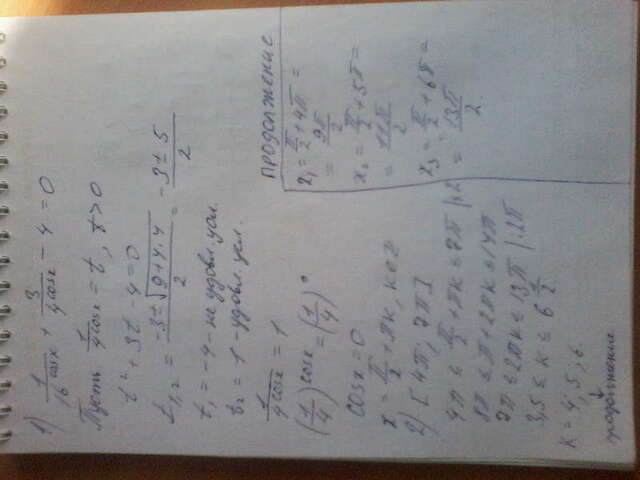 1) 1/16^cosx + 3/4^cosx − 4 = 0
Пусть 1/4^cosx = t, t > 0
t² + 3t − 4 = 0
t₁,₂ = (−3 ± √(9+4·4))/2 = (−3 ± 5)/2
t₁ = −4 − не удовл. усл.
t₂ = 1 − удовл. усл.
1/4^cosx = 1
(1/4)^cosx = (1/4)⁰
cosx = 0
x = π/2 + πk, k ∈ Z
2) [4π; 7π]
4π ≤ π/2 + πk ≤ 7π |·2
8π ≤ π + 2πk ≤ 14π
7π ≤ 2πk ≤ 13π |:2π
3,5 ≤ k ≤ 6 1/2
k = 4; 5; 6.
продолжение
ПРОДОЛЖЕНИЕ
x₁ = π/2 + 4π =
= 9π/2
x₂ = π/2 + 5π =
= 11π/2
x₃ = π/2 + 6π =
= 13π/2.